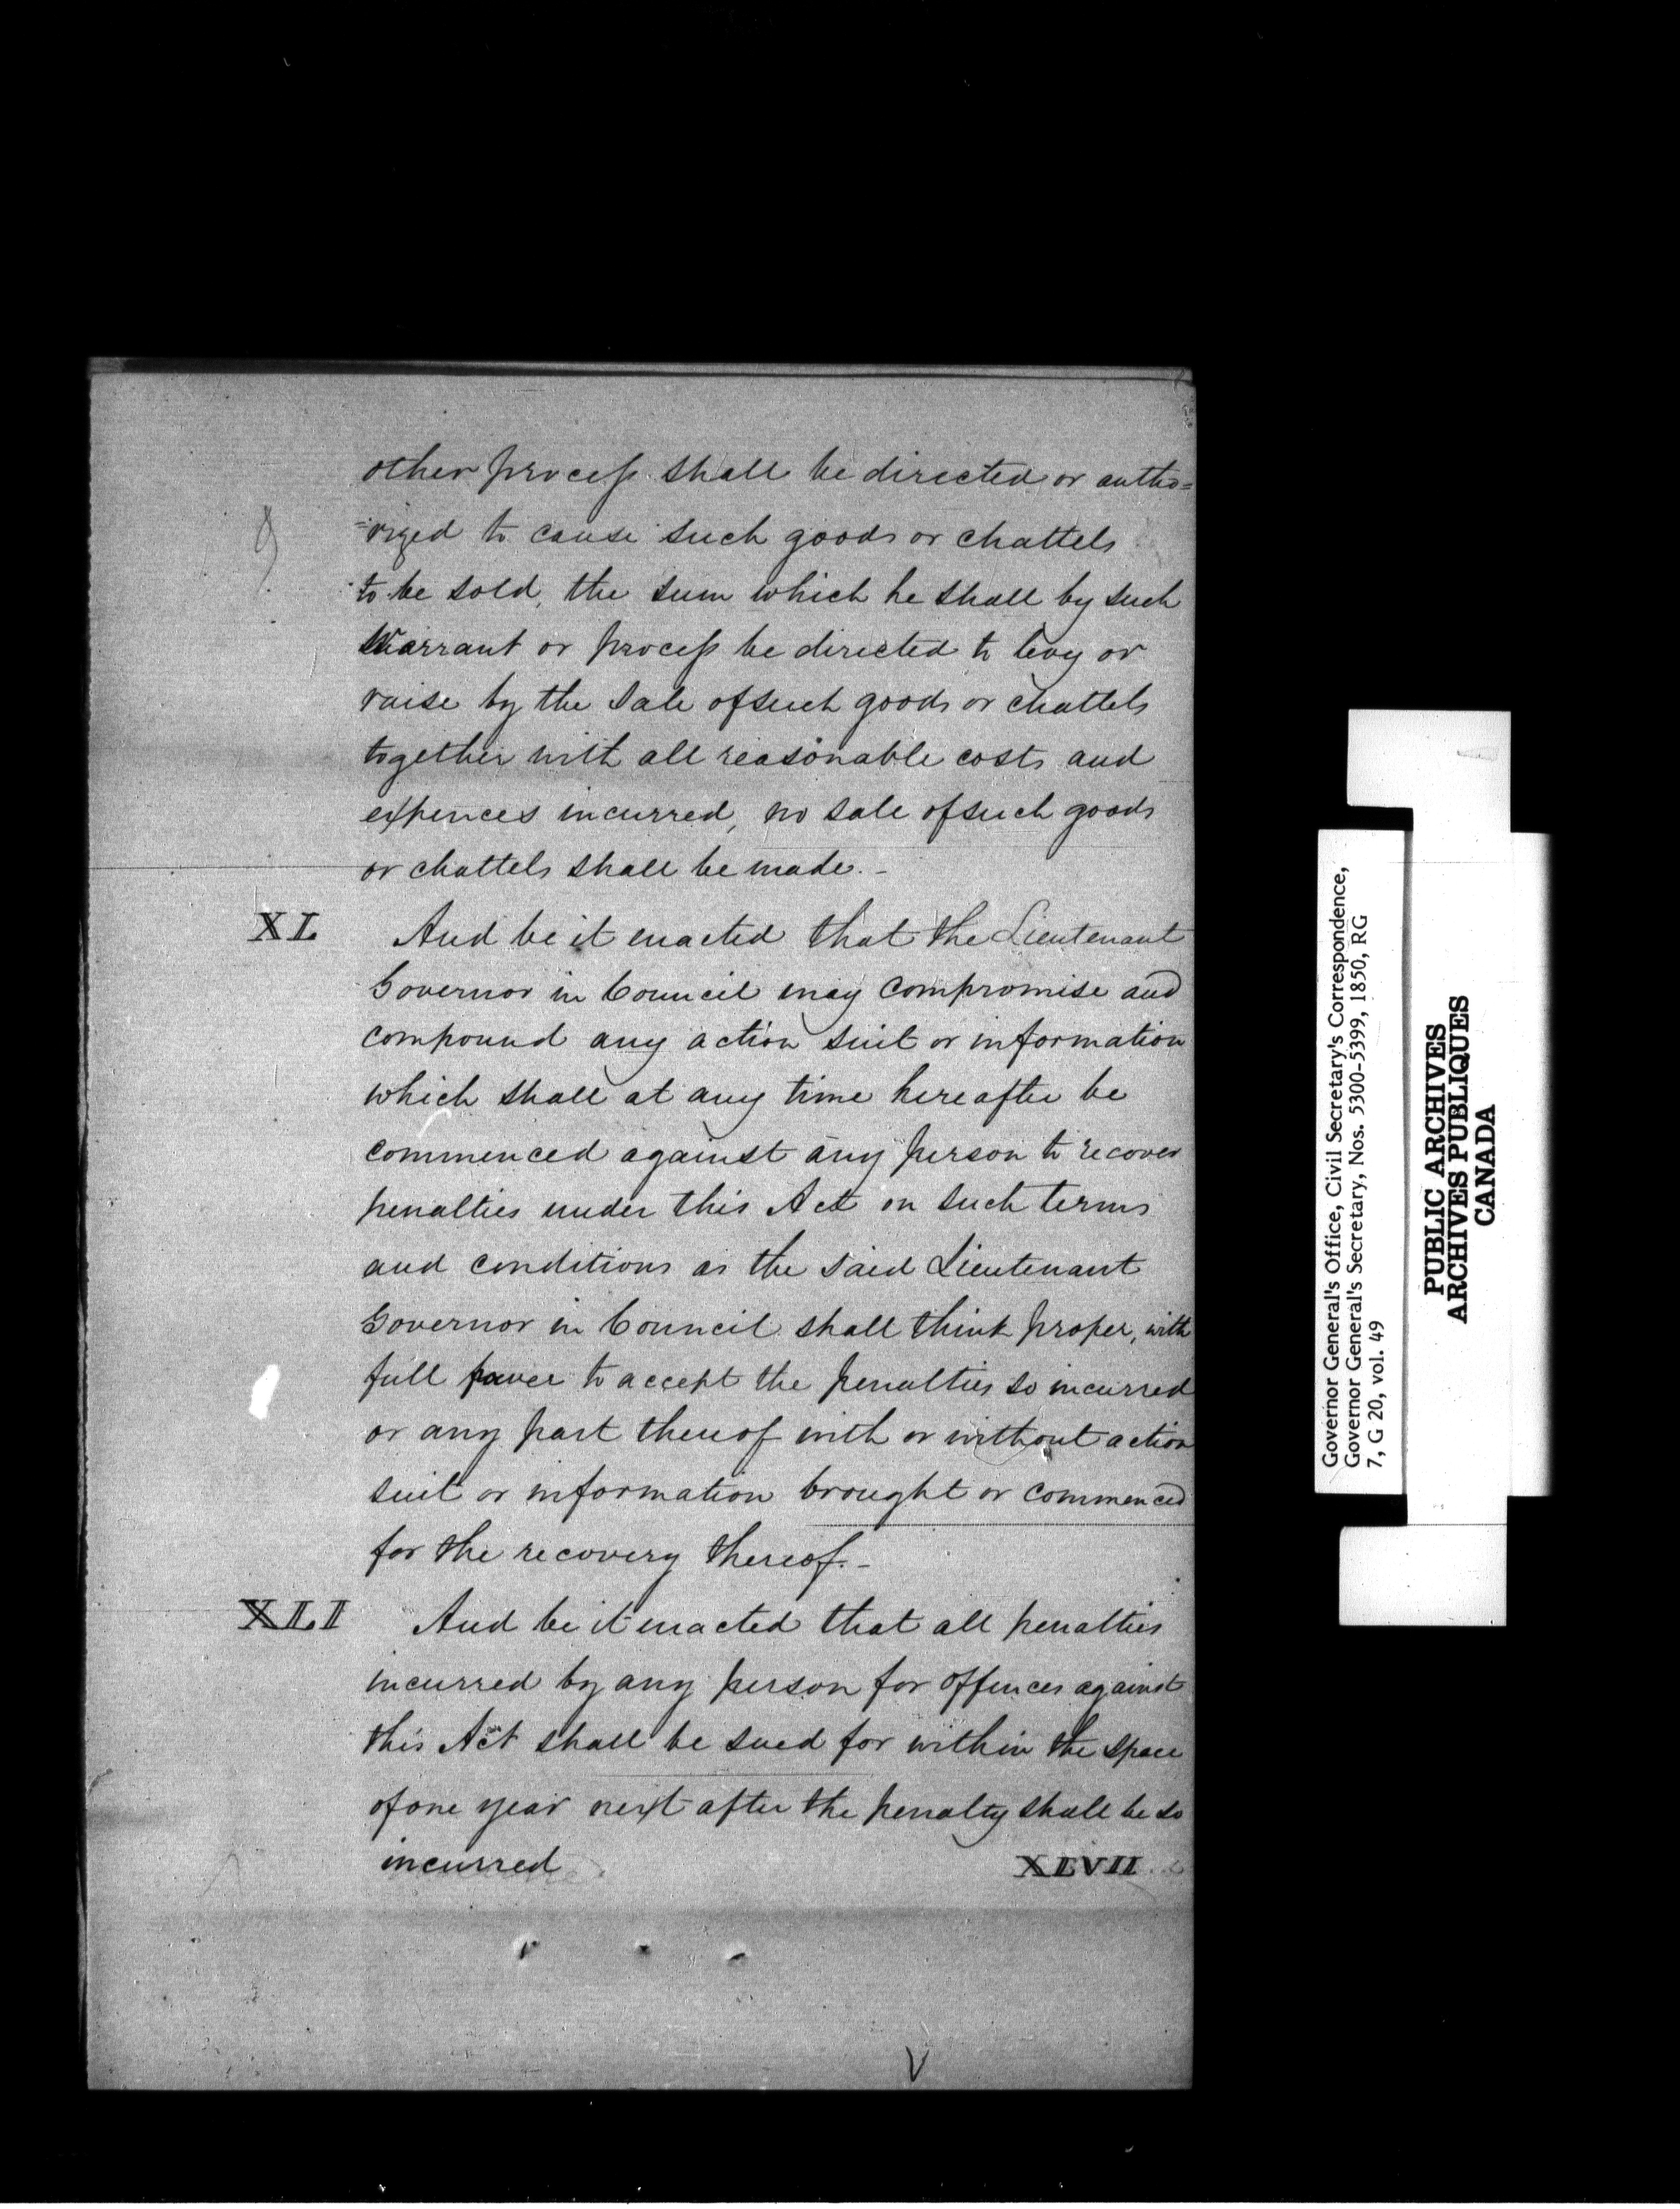 other process shall be directed or autho=
=rized to cause such goods or chattels
to be sold, the sum which he shall by such
Warrant or process be directed to levy or
raise by the sale of such goods or chattels
together with all reasonable costs and
expences incurred, no sale of such goods
or chattels shall be made.-
XL And be it enacted that the Lieutenant
Governor in Council may compromise and
compound any action suit or information
which shall at any time hereafter be
commenced against any person to recover
penalties under this Act on such terms
and conditions as the said Lieutenant
Governor in Council shall think proper, with
full power to accept the penalties so incurred
or any part thereof with or without action
suit or information brought or commenced
for the recovery thereof.-
XLI And be it enacted that all penalties
incurred by any person for offences against
this Act shall be sued for within the space
of one year next after the penalty shall be so
incurred XLVII
Governor General's Office, Civil Secretary's Correspondence,
Governor General's Secretary, Nos. 5300-5399, 1850, RG
7, G 20, vol. 49
PUBLIC ARCHIVES
ARCHIVES PUBLIQUES
CANADA